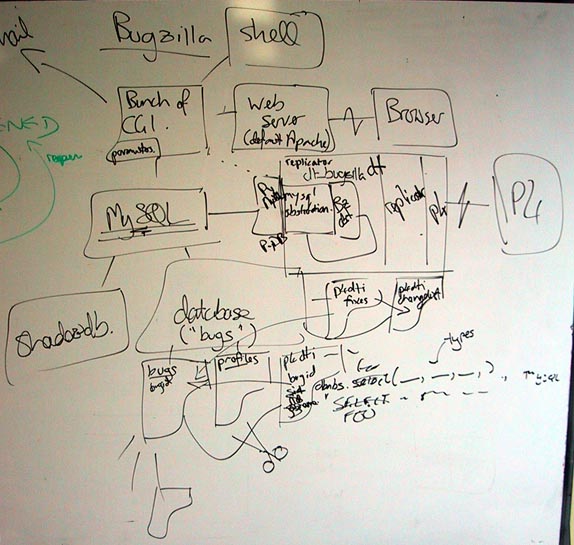 mail
Bugzilla
shell
Bunch of
CGI.
parameters
Web
Server
(default Apache)
Browser
ENED
reopen
replicator
dt-bugzilla
dt
My SQL
mysql
abstraction.
replicator
p4
P4
shadowdb.
database
("bugs")
p4dti
fixes
p4dti
changelist
bugs
bugid
profiles
p4dti
bugid
types
dbms.select(—, —, —, )
SELECT
FOO